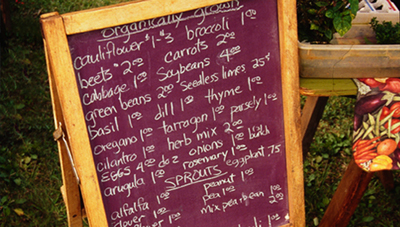 organically grown
cauliflower $1-$3 broccoli 1.00
beets 2.00 carrots 2.00
cabbage 1.00 Soybeans 4.00
green beans 2.00 Seedless limes 25¢
basil 1.00 dill 1.00 thyme 1.00
oregano 1.00 tarragon 1.00 parsely 1.00
cilantro 1.00 herb mix 2.00
EGGS 4.00 doz onions 1.00 bunch
arugula 1.00 rosemary 1.00 eggplant 75
SPROUTS
alfalfa 1.00 peanut 1.00
clover 1.00 pea 1.00
mix pea & bean 2.00
1.00